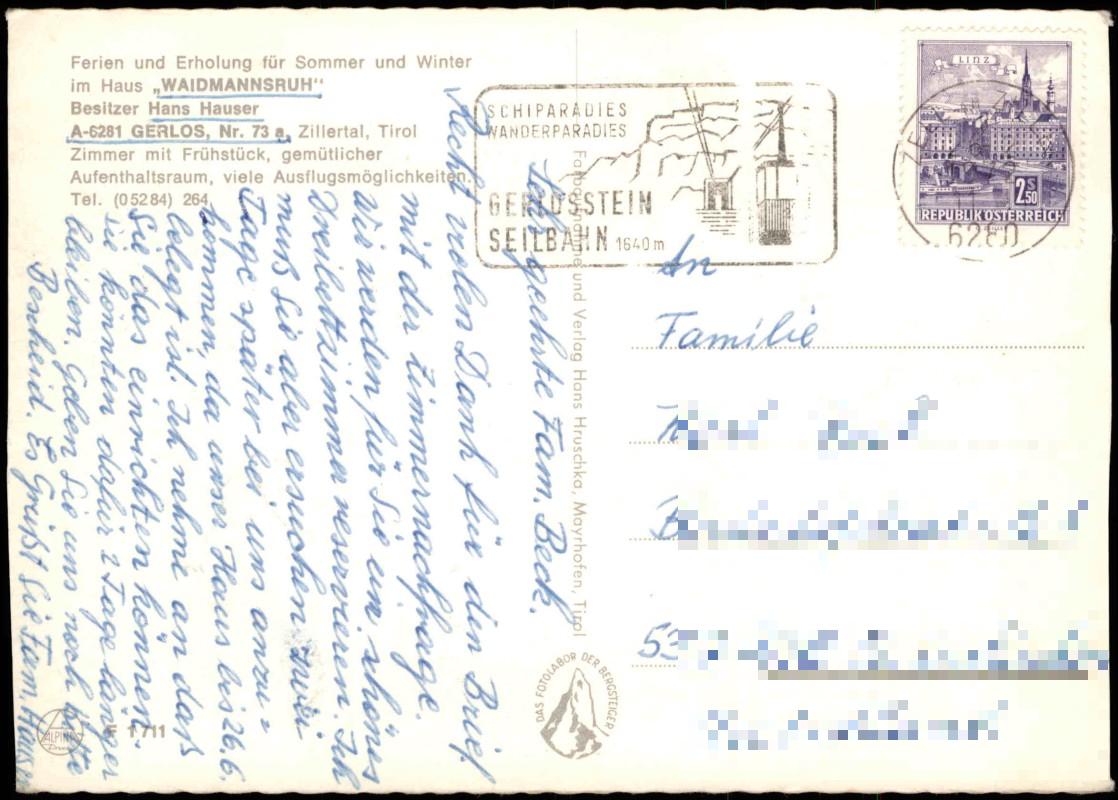 Ferien und Erholung für Sommer und Winter
im Haus „WAIDMANNSRUH"
Besitzer Hans Hauser
A-6281 GERLOS, Nr. 73 a, Zillertal, Tirol
Zimmer mit Frühstück, gemütlicher
Aufenthaltsraum, viele Ausflugsmöglichkeiten.
Tel. (0 52 84) 264
SCHIPARADIES
WANDERPARADIES
GERLOSSTEIN
SEILBAHN 1640 m
LINZ
2,50 S
REPUBLIK ÖSTERREICH
6280
Sehr geehrte Fam. Beck.
Recht vielen Dank für den Brief
mit der Zimmernachfrage.
Wir werden für Sie ein schönes
Dreibettzimmer reservieren. Ich
muß Sie aber ersuchen zwei
Tage später bei uns anzu-
kommen, da unser Haus bis 26.6.
belegt ist. Ich nehme an daß
Sie das einrichten können.
Sie könnten dafür 2 Tage länger
bleiben. Geben Sie uns noch bitte
Bescheid. Es Grüßt Sie Fam. Hauser
Farbaufnahme und Verlag Hans Hruschka, Mayrhofen, Tirol
An
Familie
53
DAS FOTOLABOR DER BERGSTEIGER
ALPINA
Druck
F 1711